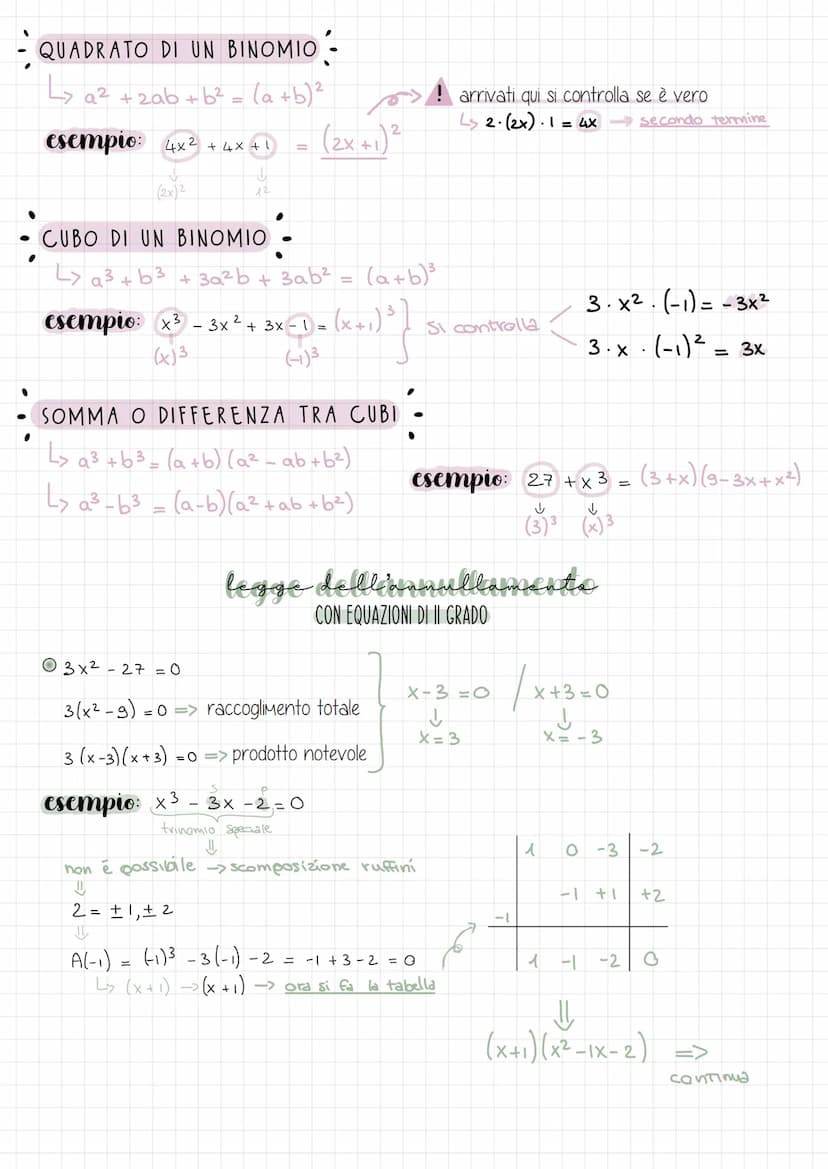 QUADRATO DI UN BINOMIO
↳ a² + 2ab + b² = (a+b)²
! arrivati qui si controlla se è vero
↳ 2·(2x)·1 = 4x → secondo termine
esempio: 4x² + 4x + 1 = (2x+1)²
↓ ↓
(2x)² 1²
CUBO DI UN BINOMIO
↳ a³ + b³ + 3a²b + 3ab² = (a+b)³
esempio: x³ - 3x² + 3x - 1 = (x+1)³ } si controlla
(x)³ (-1)³
3·x²·(-1) = -3x²
3·x·(-1)² = 3x
SOMMA O DIFFERENZA TRA CUBI
↳ a³ + b³ = (a+b)(a² - ab + b²)
↳ a³ - b³ = (a-b)(a² + ab + b²)
esempio: 27 + x³ = (3+x)(9-3x+x²)
↓ ↓
(3)³ (x)³
legge dell'annullamento
CON EQUAZIONI DI II GRADO
3x² - 27 = 0
3(x² - 9) = 0 => raccoglimento totale
3(x-3)(x+3) = 0 => prodotto notevole
x-3 = 0 / x+3 = 0
↓ ↓
x = 3 x = -3
esempio: x³ - 3x - 2 = 0
s p
trinomio speciale
⇓
non é possibile → scomposizione ruffini
⇓
2 = ±1, ±2
⇓
A(-1) = (-1)³ - 3(-1) - 2 = -1 + 3 - 2 = 0
↳ (x+1) → (x+1) → ora si fa la tabella
1 0 -3 -2
-1 +1 +2
-1
1 -1 -2 0
⇓
(x+1)(x² - 1x - 2) =>
continua